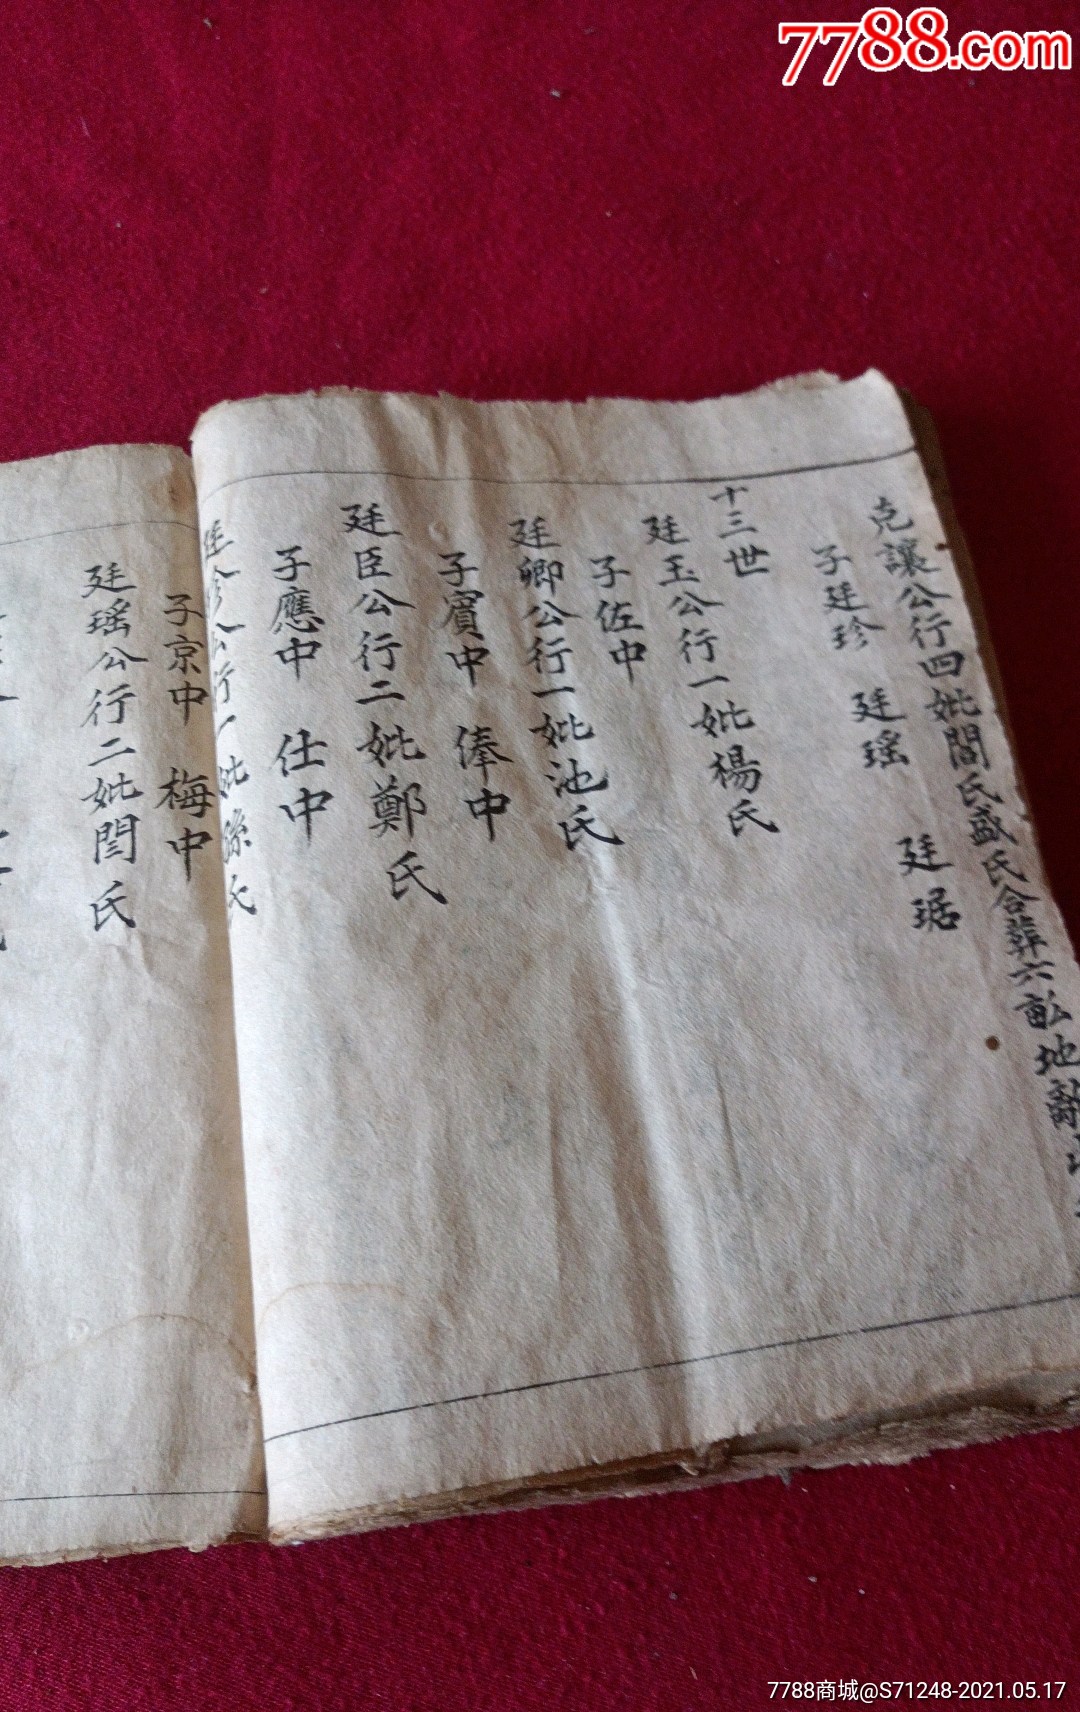 7788.com
克讓公行四妣閻氏盛氏合葬六畝地
子廷珍 廷瑤 廷琚
十三世
廷玉公行一妣楊氏
子佐中
廷卿公行一妣池氏
子賓中 俸中
廷臣公行二妣鄭氏
子應中 仕中
廷珍公行一妣孫氏
子京中 梅中
廷瑤公行二妣閆氏
7788商城@S71248-2021.05.17